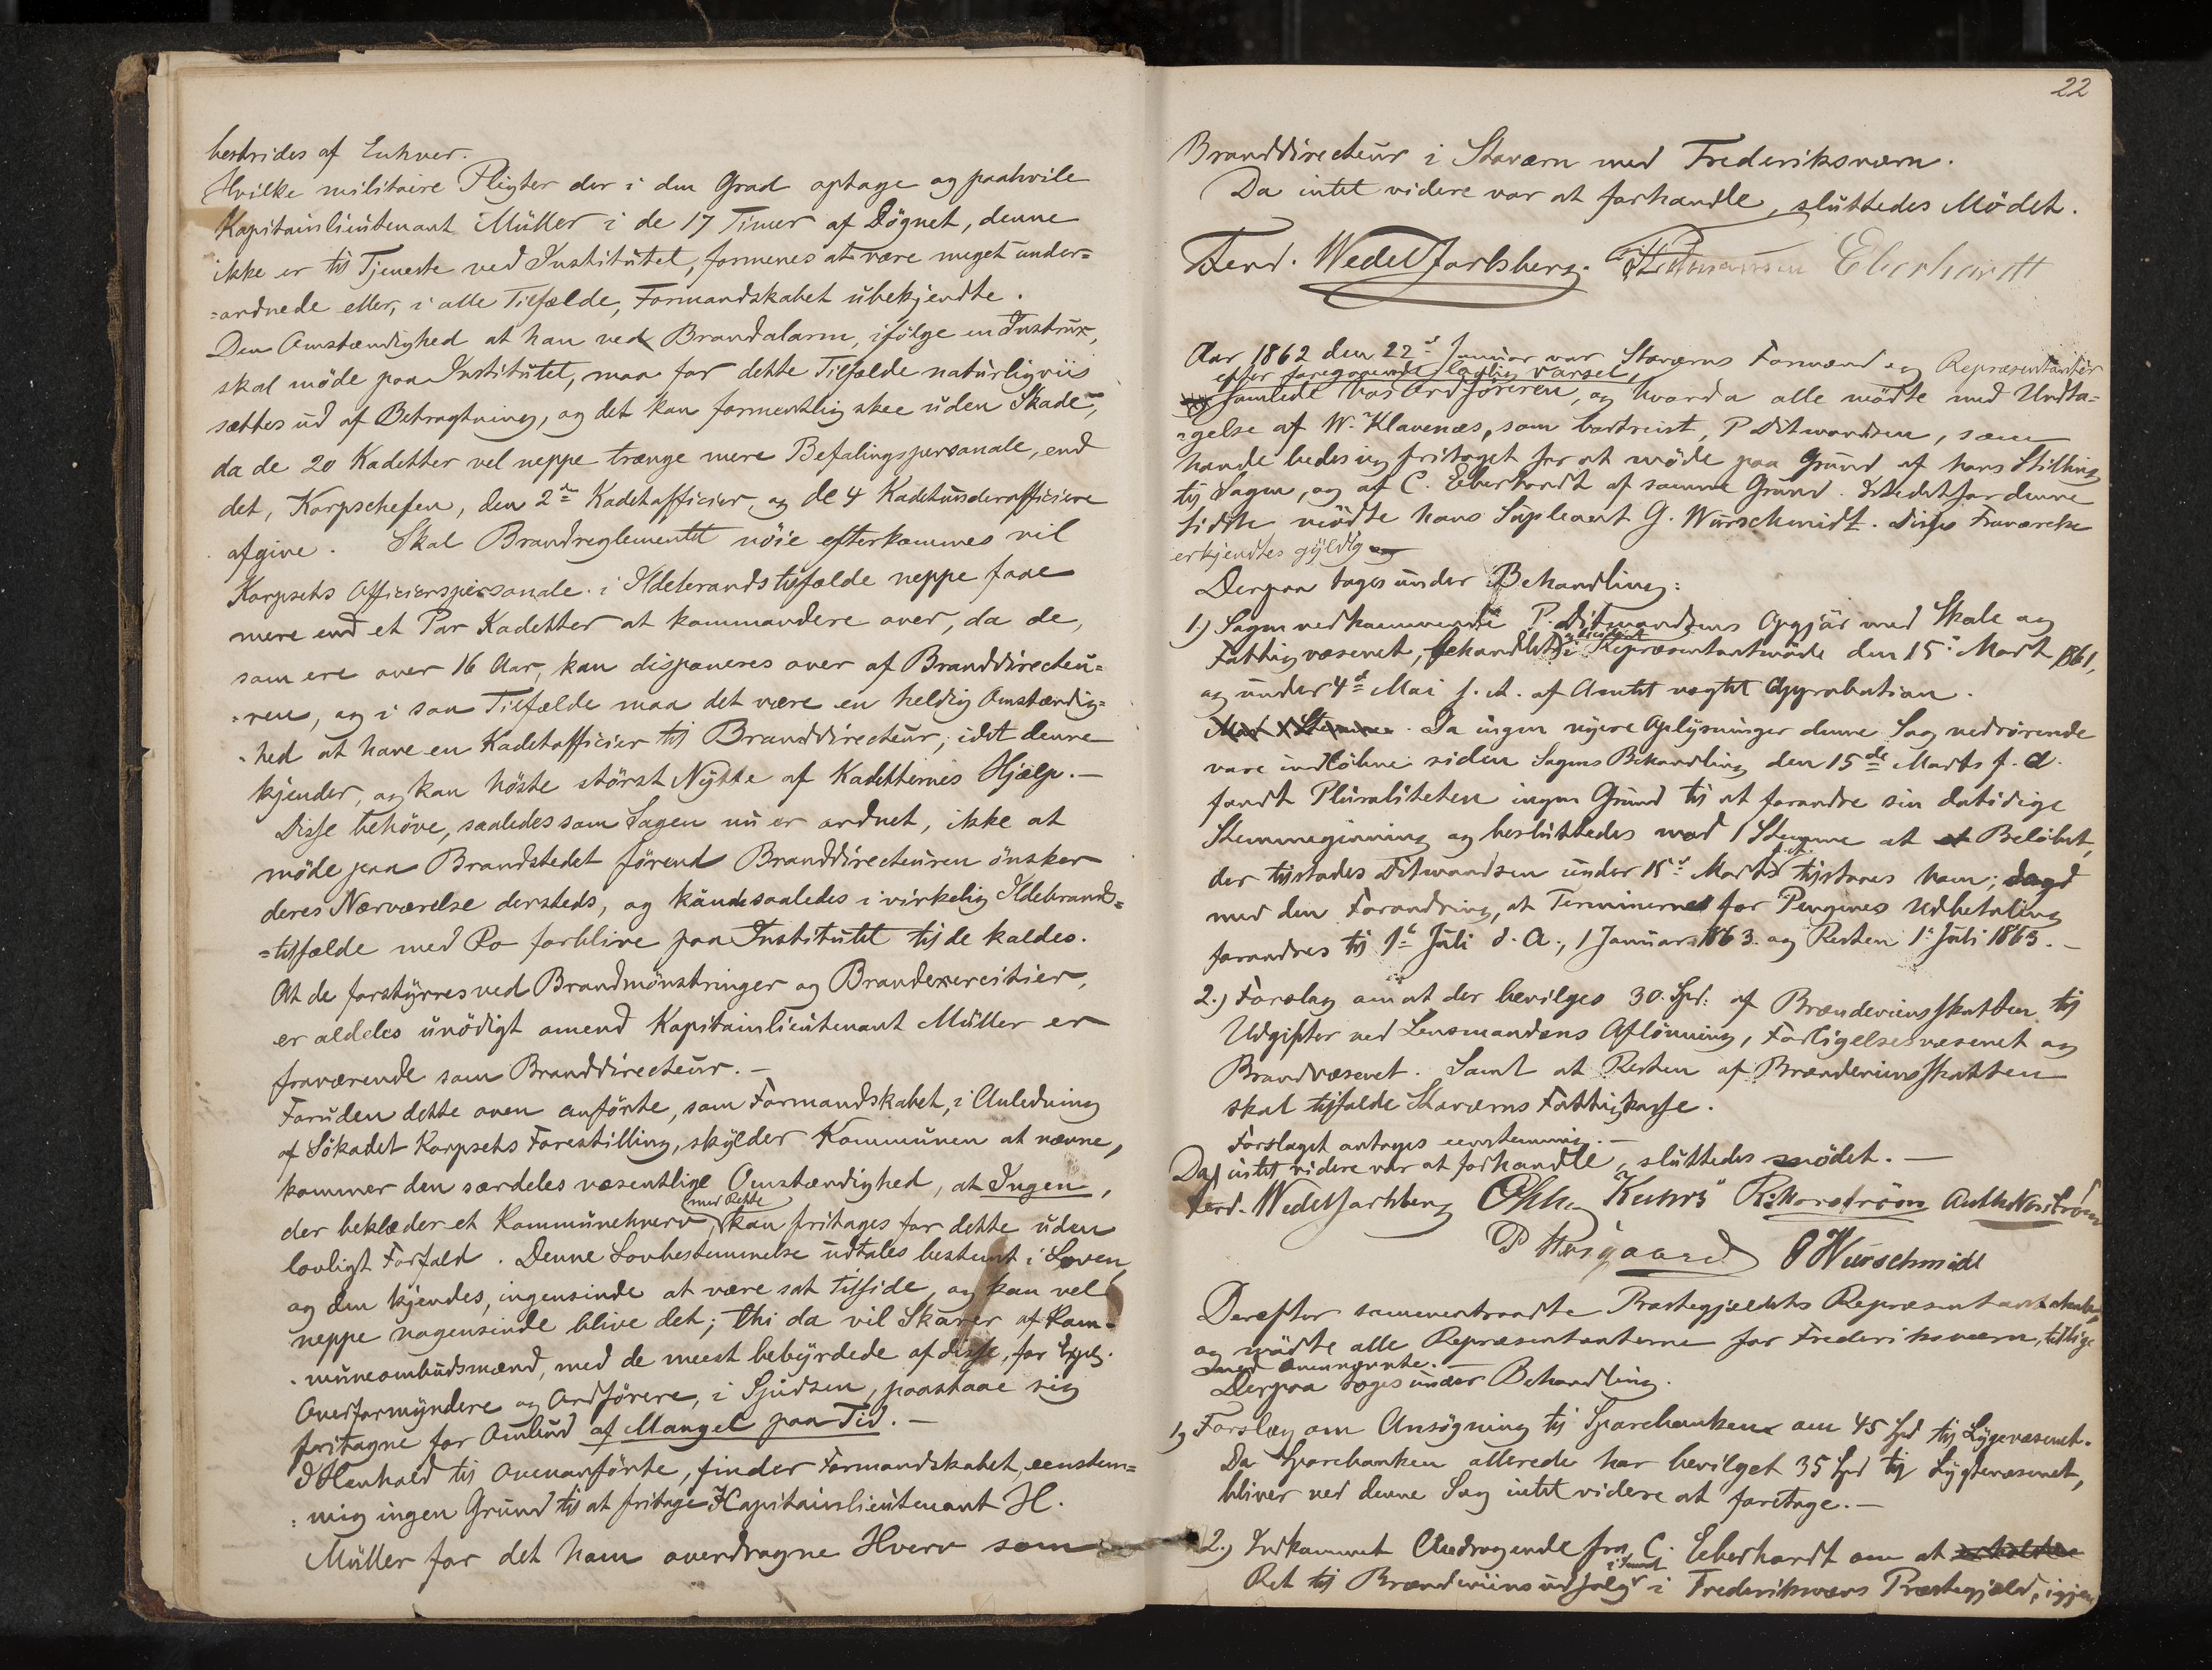 bestrides af Enhver.
Hvilke militaire Pligter der i den Grad optage og paahvile
Kapitainlieutenant Müller i de 17 Timer af Dögnet, denne
ikke er til Tjeneste ved Institutet, formenes at være meget under=
=ordnede eller, i alle Tilfælde, Formandskabet ubekjendte.
Den Omstændighed at han ved Brandalarm, ifölge en Instrux,
skal möde paa Institutet, maa for dette Tilfælde naturligviis
sættes ud af Betragtning, og det kan formentlig skee uden Skade,
da de 20 Kadetter vel neppe trænge mere Befalingspersonale, end
det, Korpschefen, den 2den Kadetofficier, og de 4 Kadetunderofficiere
afgive. Skal Brandreglementet nöie efterkommes vil
Korpsets Officierspersonale i Ildebrandstilfælde neppe faae
mere end et Par Kadetter at kommandere over, da de,
som ere over 16 Aar, kan disponeres over af Branddirecteu=
=ren, og i saa Tilfælde maa det være en heldig Omstændig=
=hed at have en Kadetofficier til Branddirecteur, idet denne
kjender, og kan höste störst Nytte af Kadetternes Hjælp. —
Disse behöve, saaledes som Sagen nu er ordnet, ikke at
möde paa Brandstedet förend Branddirecteuren önsker
deres Nærværelse dersteds, og kunde saaledes i virkelig Ildebrands=
=tilfælde med Ro forblive paa Institutet til de kaldes.
At de forstyrres ved Brandmönstringer og Brandexercitier,
er aldeles unödigt omend Kapitainlieutenant Müller er
fraværende som Branddirecteur. —
Foruden dette oven anförte, som Formandskabet, i Anledning
af Sökadet Korpsets Forestilling, skylder Kommunen at nævne,
kommer den særdeles væsentlige Omstændighed, at Ingen,
der beklæder et Kommunehverv med Rette kan fritages for dette uden
lovligt Forfald. Denne Lovbestemmelse udtales bestemt i Loven,
og den kjendes, ingensinde at være sat tilside, og kan vel
neppe nogensinde blive det; thi da vil Skarer af Kom=
=muneombudsmænd, med de meest bebyrdede af disse, for Expl.
Overformyndere og Ordförere, i Spidsen, paastaae sig
fritagne for Ombud af Mangel paa Tid. —
I Henhold til ovenanförte, finder Formandskabet, eenstem=
=mig ingen Grund til at fritage Kapitainlieutenant H.
Müller for det ham overdragne Hverv som
22
Branddirecteur i Staværn med Frederiksværn.
Da intet videre var at forhandle, sluttedes Mödet.
Ferd. Wedel Jarlsberg. Eberhardt
Aar 1862 den 22de Januar var Staværns Formænd og Repræsentanter
efter foregaaende lovlig Varsel,
samlede hos Ordföreren, og hvorda alle mödte med Undta=
=gelse af W. Klavenæs, som bortreist, P Ditmandsen, som
havde bedet sig fritaget for at möde paa Grund af hans Stilling
til Sagen, og af C. Eberhardt af samme Grund. Istedetfor denne
sidste mödte hans Supleant G. Würschmidt. Disses Fraværelse
erkjendtes gyldig
Derpaa toges under Behandling:
1.) Sagen vedkommende P. Ditmandsens Opgjör med Skole og
Fattigvæsenet, behandlet i Repræsentantmöde den 15de Marts 1861,
og under 4de Mai f. A. af Amtet nægtet Approbation.
Da ingen nyere Oplysninger denne Sag vedrörende
vare indlöbne siden Sagens Behandling den 15de Marts f. A.
fandt Pluraliteten ingen Grund til at forandre sin datidige
Stemmegivning og besluttedes mod 1 Stemme at Belöbet,
der tilstodes Ditmandsen under 15de Marts f.A. tilstaaes ham; dog
med den Forandring, at Terminerne for Pengenes Udbetaling
forandres til 1ste Juli d. A., 1 Januar 1863 og Resten 1ste Juli 1863. —
2.) Forslag om at der bevilges 30. Spd: af Brændeviinsskatten til
Udgifter ved Lensmandens Aflönning, Forligelsesvæsenet og
Brandvæsenet. Samt at Resten af Brændeviinsskatten
skal tilfalde Staværns Fattigkasse.
Forslaget antoges eenstemmig. —
Da intet videre var at forhandle, sluttedes mödet. —
Ferd. Wedel Jarlsberg
G Würschmidt
Derefter sammentraadte Præstegjeldets Repræsentantskab,
og mödte alle Repræsentanterne for Frederiksværn, tillige
med ovennævnte. —
Derpaa toges under Behandling.
1) Forslag om Ansögning til Sparebanken om 45 Spd til Lygtevæsenet.
Da Sparebanken allerede har bevilget 35 Spd til Lygtevæsenet,
bliver ved denne Sag intet videre at foretage. —
2.) Indkommet Andragende fra C. Eberhardt om at erholde
Ret til Brændeviinsudsalg i Frederiksværns Præstegjæld, igjen